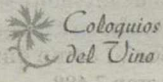 Coloquios
del Vino